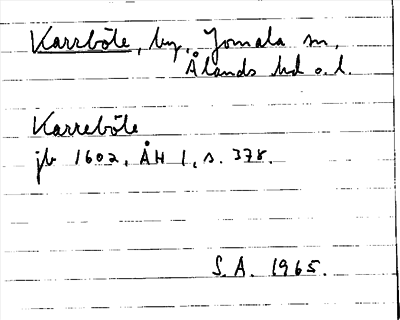 Karrböle, by, Jomala sn,
Ålands hd o. l.
Karreböle
jb 1602, ÅH 1, s. 378.
S. A. 1965.